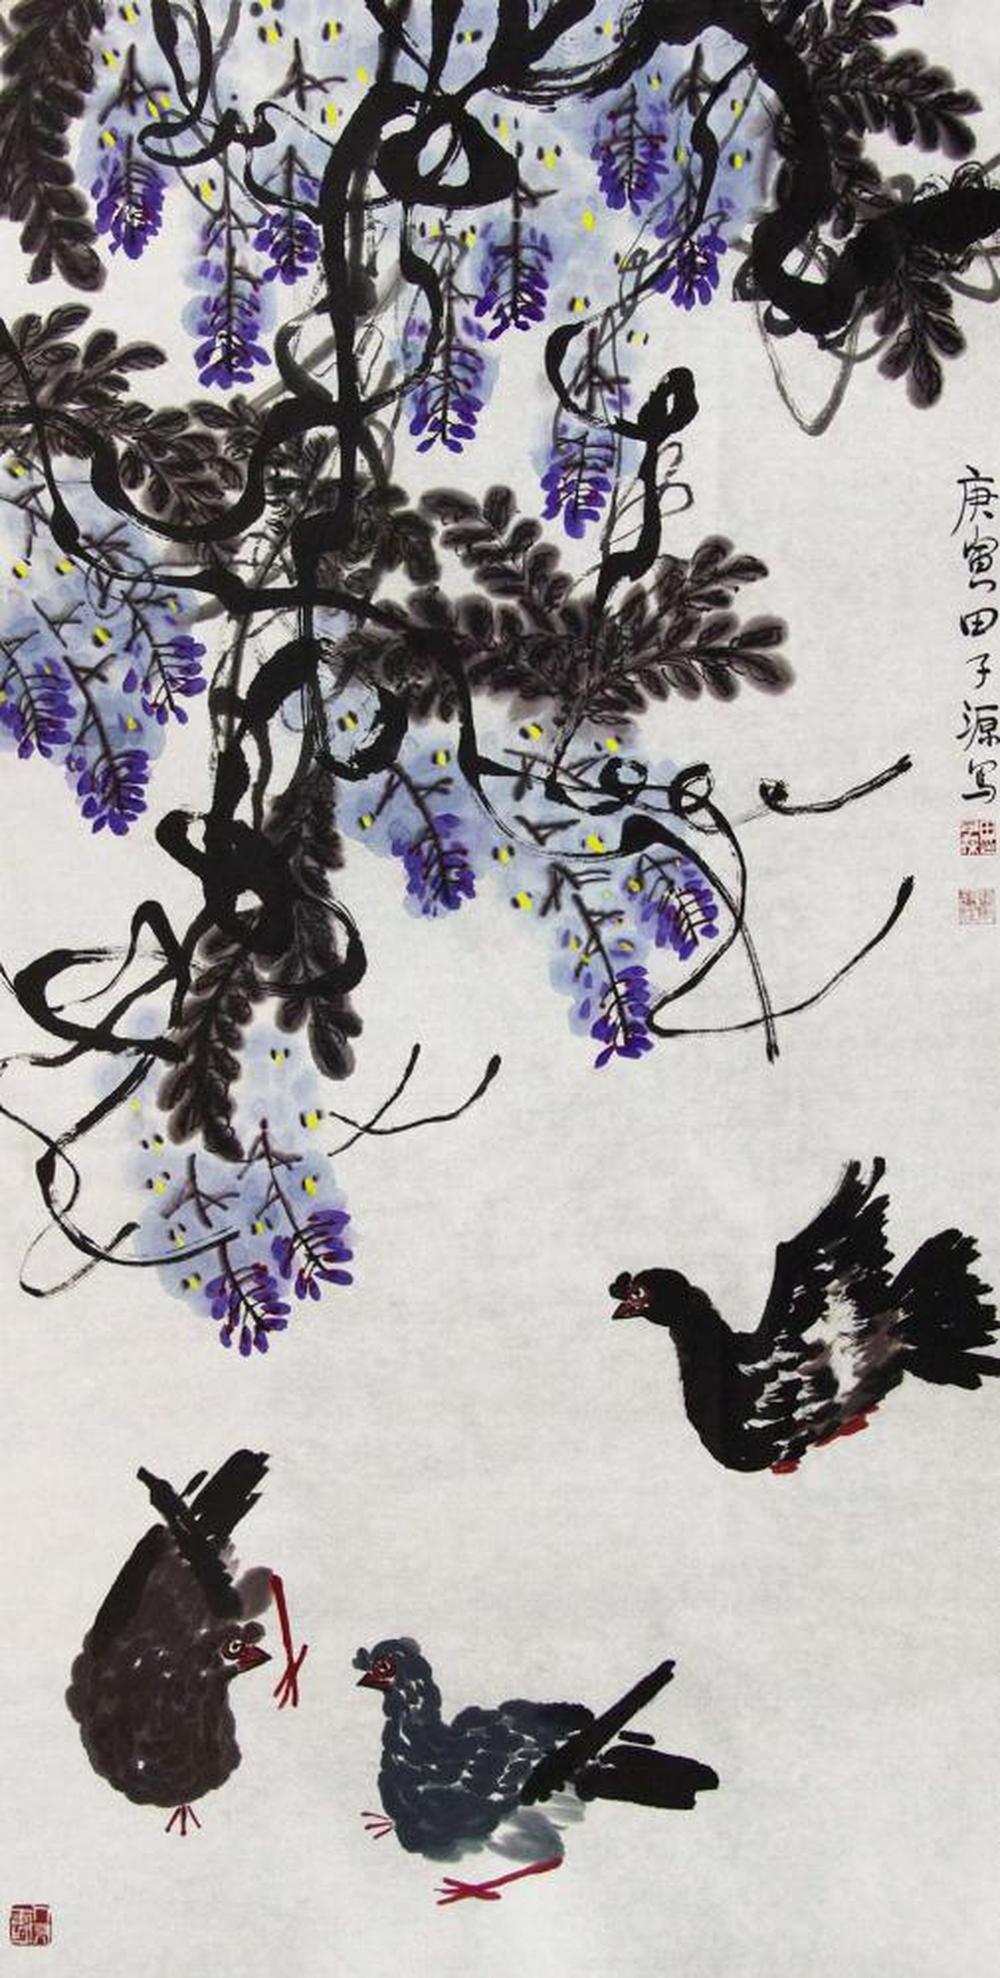 庚寅田子源写